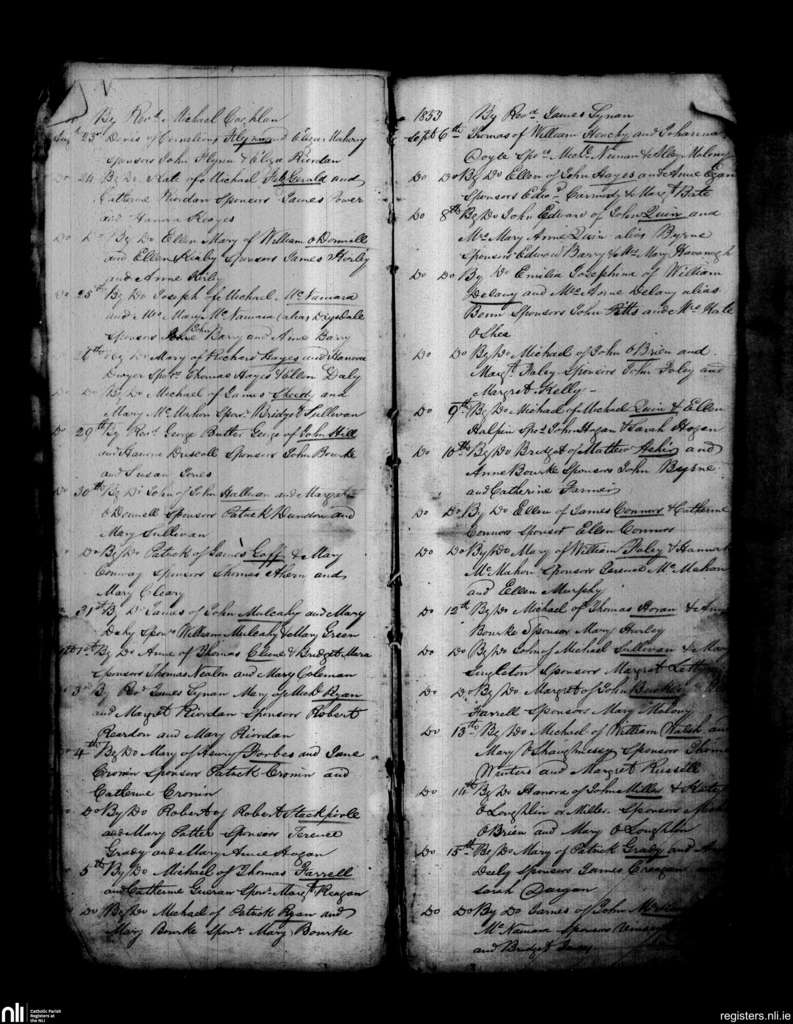 By Revd. Michael Coghlan
23 Denis of Cornelius Flynn and Eliza Mahony
Sponsors John Flynn & Eliza Riordan
Do 24 By Do Kate of Michael FitzGerald and
Catherine Riordan Sponsors James Power
and Hanora Hayes
Do Do By Do Ellen Mary of William O'Donnell
and Ellen Kirby Sponsors James
and Anne Kirby
Do 25th By Do Joseph of Michael McNamara
and Mrs Mary McNamara alias Drysdale
Sponsors John Barry and Anne Barry
By Do Mary of Richard Hayes and Hanora
Dwyer Sponrs Thomas Hayes & Ellen Daly
Do By Do Michael of James Sheedy and
Mary McMahon Sponr Bridget Sullivan
Do 29th By Revd. George Butler George of John Hill
and Hanora Driscoll Sponsors John Bourke
and Susan Jones
Do 30th By Do John of John Hallinan and Margret
O'Donnell Sponsors Patrick Dundon and
Mary Sullivan
Do Do By Do Patrick of James Goff & Mary
Conway Sponsors Thomas Ahern and
Mary Cleary
31st By Do James of John Mulcahy and Mary
Daly Sponrs William Mulcahy & Mary Green
1st By Do Anne of Thomas & Bridget Mara
Sponsors Thomas Nealon and Mary Coleman
3d By Revd James Synan Mary of Michl Ryan
and Margret Riordan Sponsors Robert
Reardon and Mary Riordan
4th By Do Mary of Henry Forbes and Jane
Cronin Sponsors Patrick Cronin and
Catherine Cronin
Do By Do Robert of Robert Stackpoole
and Mary Potter Sponsors Terence
Grady and Mary Anne Hogan
5th By Do Michael of Thomas Farrell
and Catherine Sponr. Margt Reagan
Do By Do Michael of Patrick Ryan and
Mary Bourke Sponr. Mary Bourke
1853 By Revd. James Synan
Sept 6th Thomas of William and Johanna
Doyle Spos Michl. Neenan & Mary Malony
Do Do By Do Ellen of John Hayes and Anne Egan
Sponsors Edwd Carmody & Margt
Do 8th By Do John Edward of John Quin and
Mrs Mary Anne Quin alias Byrne
Sponsors Edward Barry & Mrs Mary Kavanagh
Do Do By Do Emilia Josephina of William
Delany and Mrs Anne Delany alias
Benn Sponsors John Pitts and Mrs Kate
O'Shea
Do Do By Do Michael of John O'Brien and
Margt Foley Sponsors John Foley and
Margret Kelly -
Do 9th By Do Michael of Michael Quin & Ellen
Halpin Spos John Hogan & Sarah Hogan
Do 10th By Do Bridget of Mathew and
Anne Bourke Sponsors John Byrne
and Catherine
Do Do By Do Ellen of James Connors & Catherine
Connors Sponsor Ellen Connors
Do Do By Do Mary of William Foley & Hannah
McMahon Sponsors Terence McMahon
and Ellen Murphy
Do 12th By Do Michael of Thomas Horan & Amy
Bourke Sponsor Mary Hurley
Do Do By Do John of Michael Sullivan & Mary
Singleton Sponsors Margret
Do Do By Do Margret of John Bourke
Farrell Sponsors Mary Malony
Do 13th By Do Michael of William Walsh and
Mary O'Shaughnessy Sponsors Thomas
Winters and Margret Russell
Do 14th By Do Hanora of John Miller & Kate
O'Loughlin or Miller. Sponsors
O'Brien and Mary O'Loughlin
Do 15th By Do Mary of Patrick Grady and
Deely Sponsors James Creagan
Sarah Durgan
Do Do By Do James of John
McNamara Sponsors
and Bridget
nli
Catholic Parish
Registers at
the NLI
registers.nli.ie